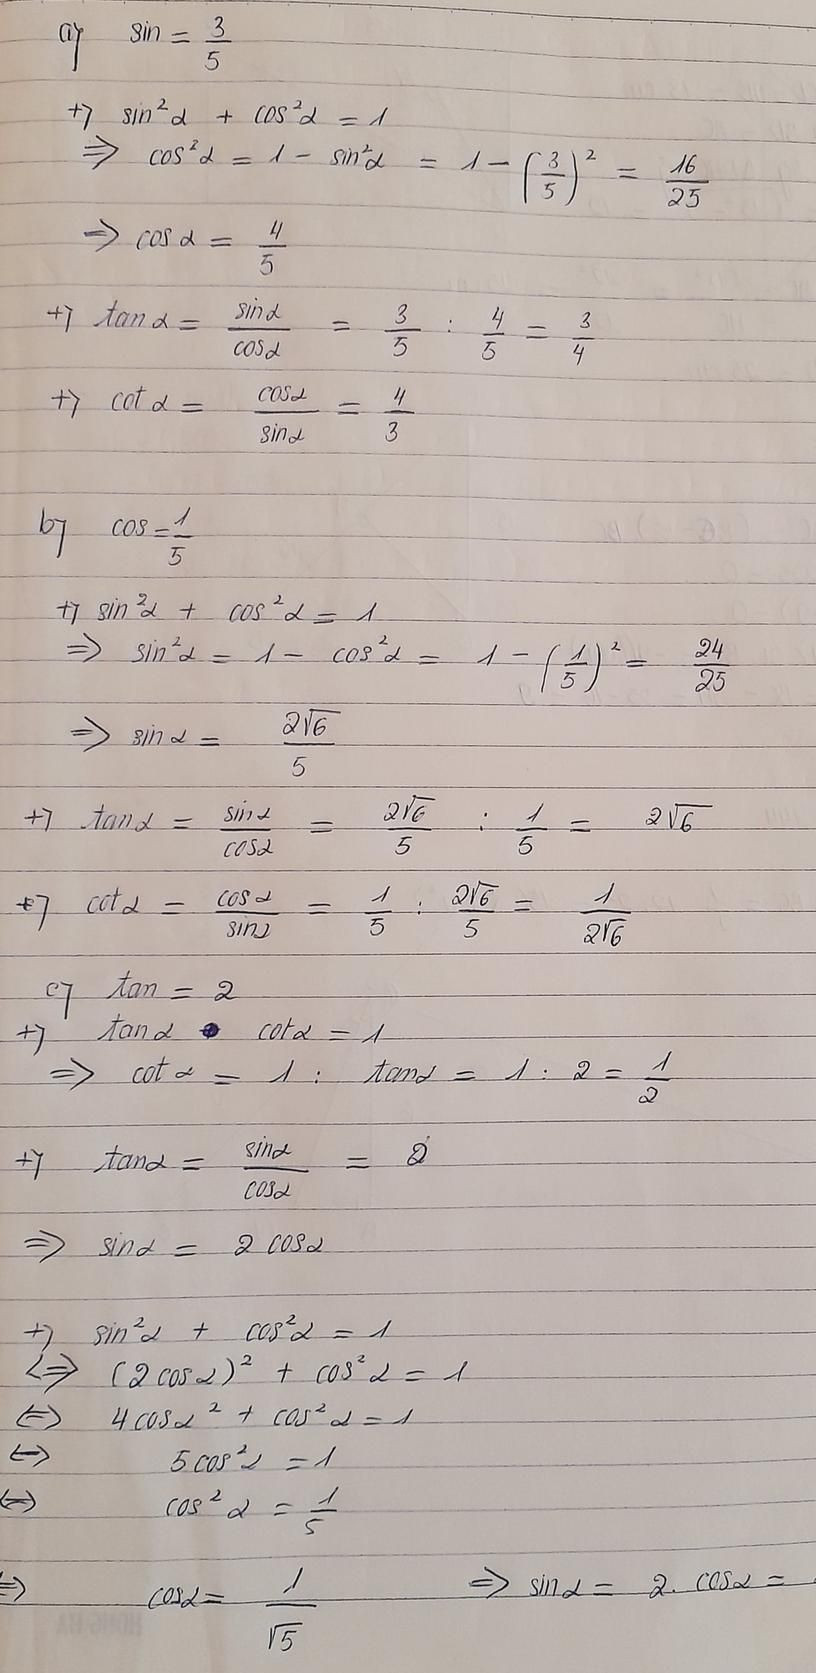 a) sin = 3/5
+) sin²α + cos²α = 1
=> cos²α = 1 - sin²α = 1 - (3/5)² = 16/25
=> cosα = 4/5
+) tanα = sinα/cosα = 3/5 : 4/5 = 3/4
+) cotα = cosα/sinα = 4/3
b) cos = 1/5
+) sin²α + cos²α = 1
=> sin²α = 1 - cos²α = 1 - (1/5)² = 24/25
=> sinα = 2√6/5
+) tanα = sinα/cosα = 2√6/5 : 1/5 = 2√6
+) cotα = cosα/sinα = 1/5 : 2√6/5 = 1/2√6
c) tan = 2
+) tanα • cotα = 1
=> cotα = 1 : tanα = 1 : 2 = 1/2
+) tanα = sinα/cosα = 2
=> sinα = 2 cosα
+) sin²α + cos²α = 1
<=> (2cosα)² + cos²α = 1
<=> 4cosα² + cos²α = 1
<=> 5cos²α = 1
<=> cos²α = 1/5
=> cosα = 1/√5 => sinα = 2. cosα =